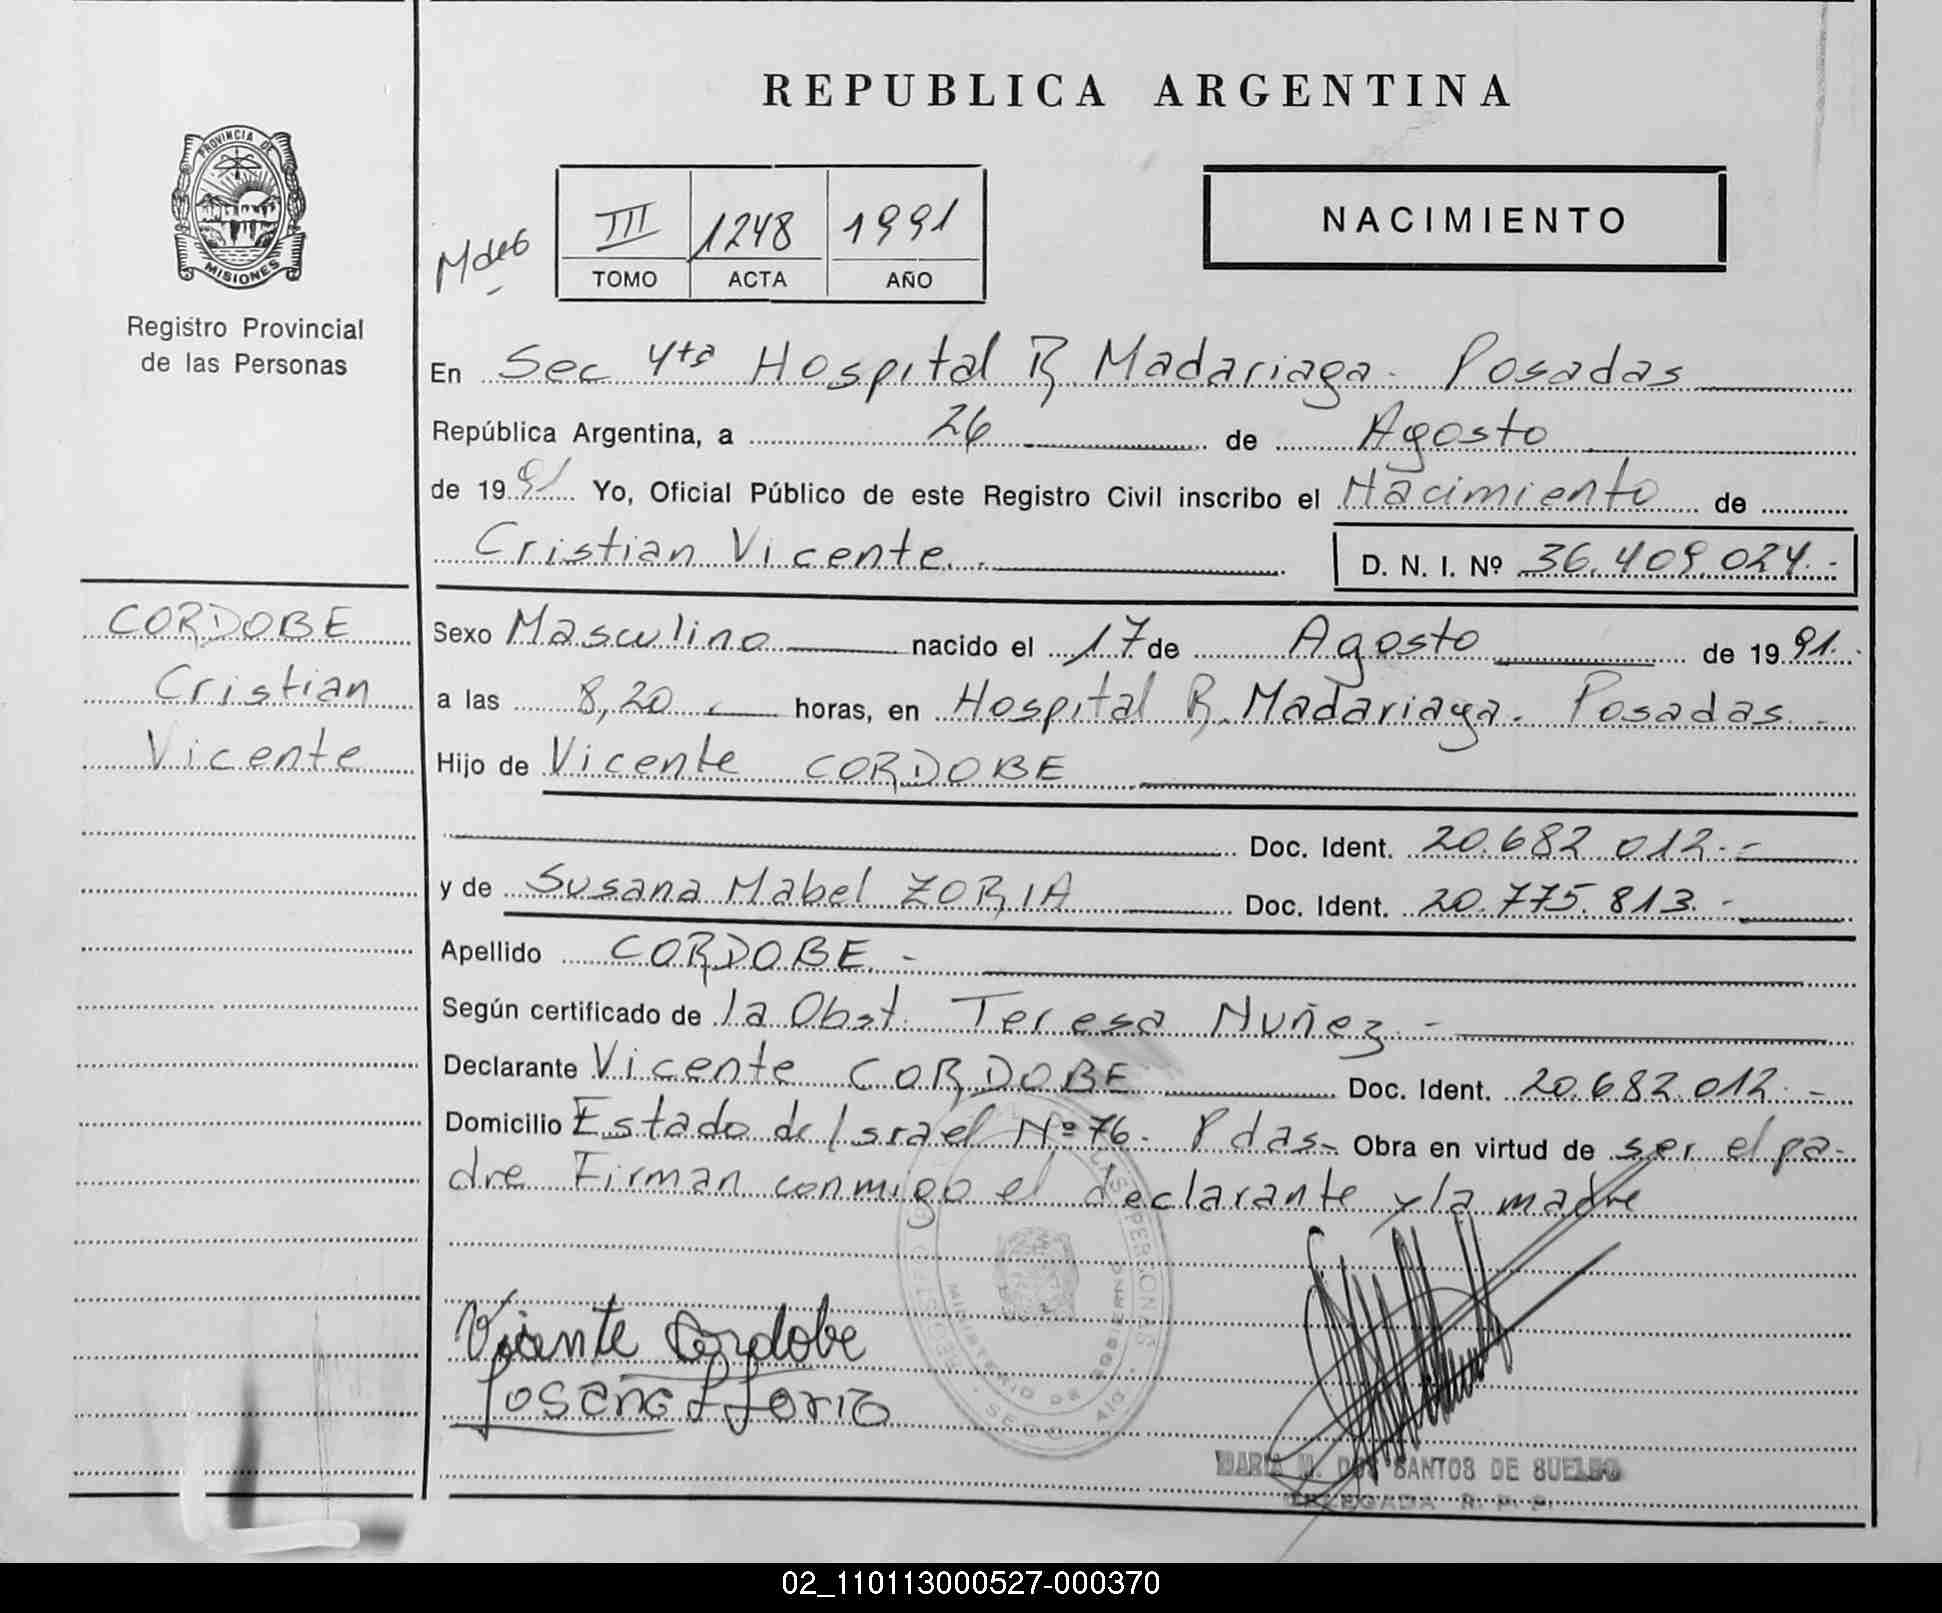 REPUBLICA ARGENTINA
PROVINCIA DE
MISIONES
Registro Provincial
de las Personas
III 1248 1991
TOMO ACTA AÑO
NACIMIENTO
En Sec 4ta Hospital R. Madariaga. Posadas
República Argentina, a 26 de Agosto
de 1991 Yo, Oficial Público de este Registro Civil inscribo el Nacimiento de
Cristian Vicente. D. N. I. Nº 36.409.024.-
CORDOBE
Cristian
Vicente
Sexo Masculino nacido el 17 de Agosto de 1991.
a las 8,20 horas, en Hospital R. Madariaga. Posadas.-
Hijo de Vicente CORDOBE
Doc. Ident. 20.682.012.-
y de Susana Mabel ZORIA Doc. Ident. 20.775.813.-
Apellido CORDOBE.-
Según certificado de la Obst. Teresa Nuñez.-
Declarante Vicente CORDOBE Doc. Ident. 20.682.012.-
Domicilio Estado de Israel Nº 76. Pdas.- Obra en virtud de ser el pa-
dre Firman conmigo el declarante y la madre
Vicente Cordobe
MINISTERIO DE GOBIERNO
MARIA M. DOS SANTOS DE
DELEGADA R. P. P.
02_110113000527-000370